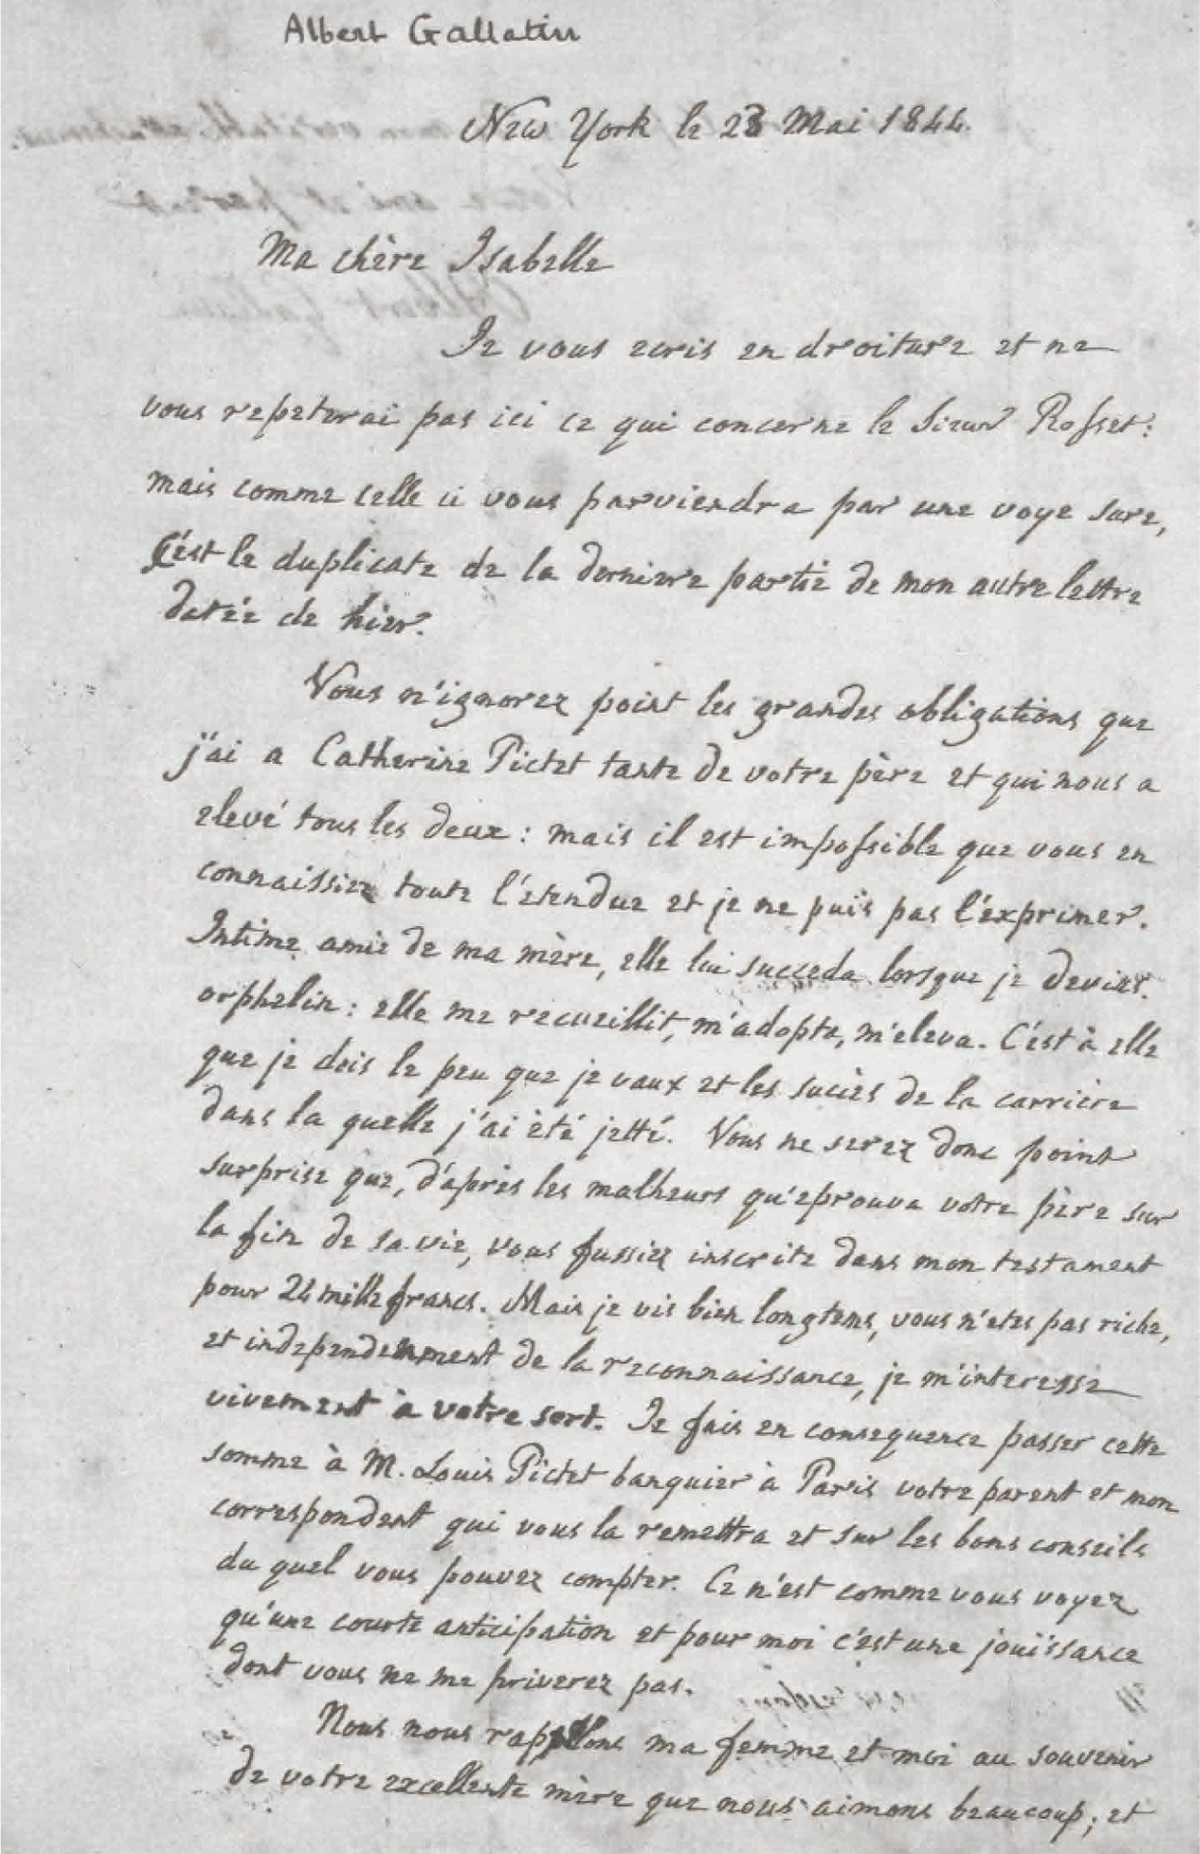 Albert Gallatin
New York le 23 Mai 1844.
Ma chère Isabelle
Je vous ecris en droiture et ne
vous repeterai pas ici ce qui concerne le Sieur Rosset:
mais comme celle ci vous parviendra par une voye sure,
C'est le duplicate de la derniere partie de mon autre lettre
datée de hier.
Vous n'ignorez point les grandes obligations que
j'ai a Catherine Pictet tante de votre père et qui nous a
elevé tous les deux: mais il est impossible que vous en
connaissiez toute l'etendue et je ne puis pas l'exprimer.
Intime amie de ma mère, elle lui succeda lorsque je devins
orphelin: elle me recueillit, m'adopta, m'eleva. C'est à elle
que je dois le peu que je vaux et les succès de la carrière
dans la quelle j'ai été jetté. Vous ne serez donc point
surprise que, d'après les malheurs qu'eprouva votre père sur
la fin de sa vie, vous fussiez inscrite dans mon testament
pour 24 mille francs. Mais je vis bien longtems, vous n'etes pas riche,
et independemment de la reconnaissance, je m'interesse
vivement à votre sort. Je fais en consequence passer cette
somme à M. Louis Pictet banquier à Paris votre parent et mon
correspondent qui vous la remettra et sur les bons conseils
du quel vous pouvez compter. Ce n'est comme vous voyez
qu'une courte anticipation et pour moi c'est une jouissance
dont vous ne me priverez pas.
Nous nous rappellons ma femme et moi au souvenir
de votre excellente mère que nous aimons beaucoup; et